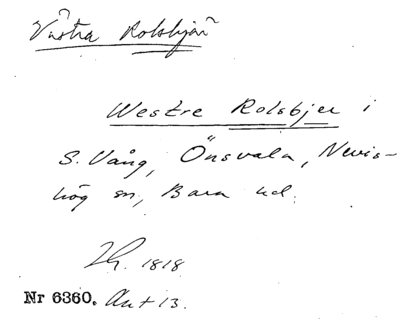 Västra Rolsbjär
Westre Rolsbjer i
S. Vång, Önsvala, Nevis-
hög sn, Bara hd.
1818
Nr 6360. Akt 13.